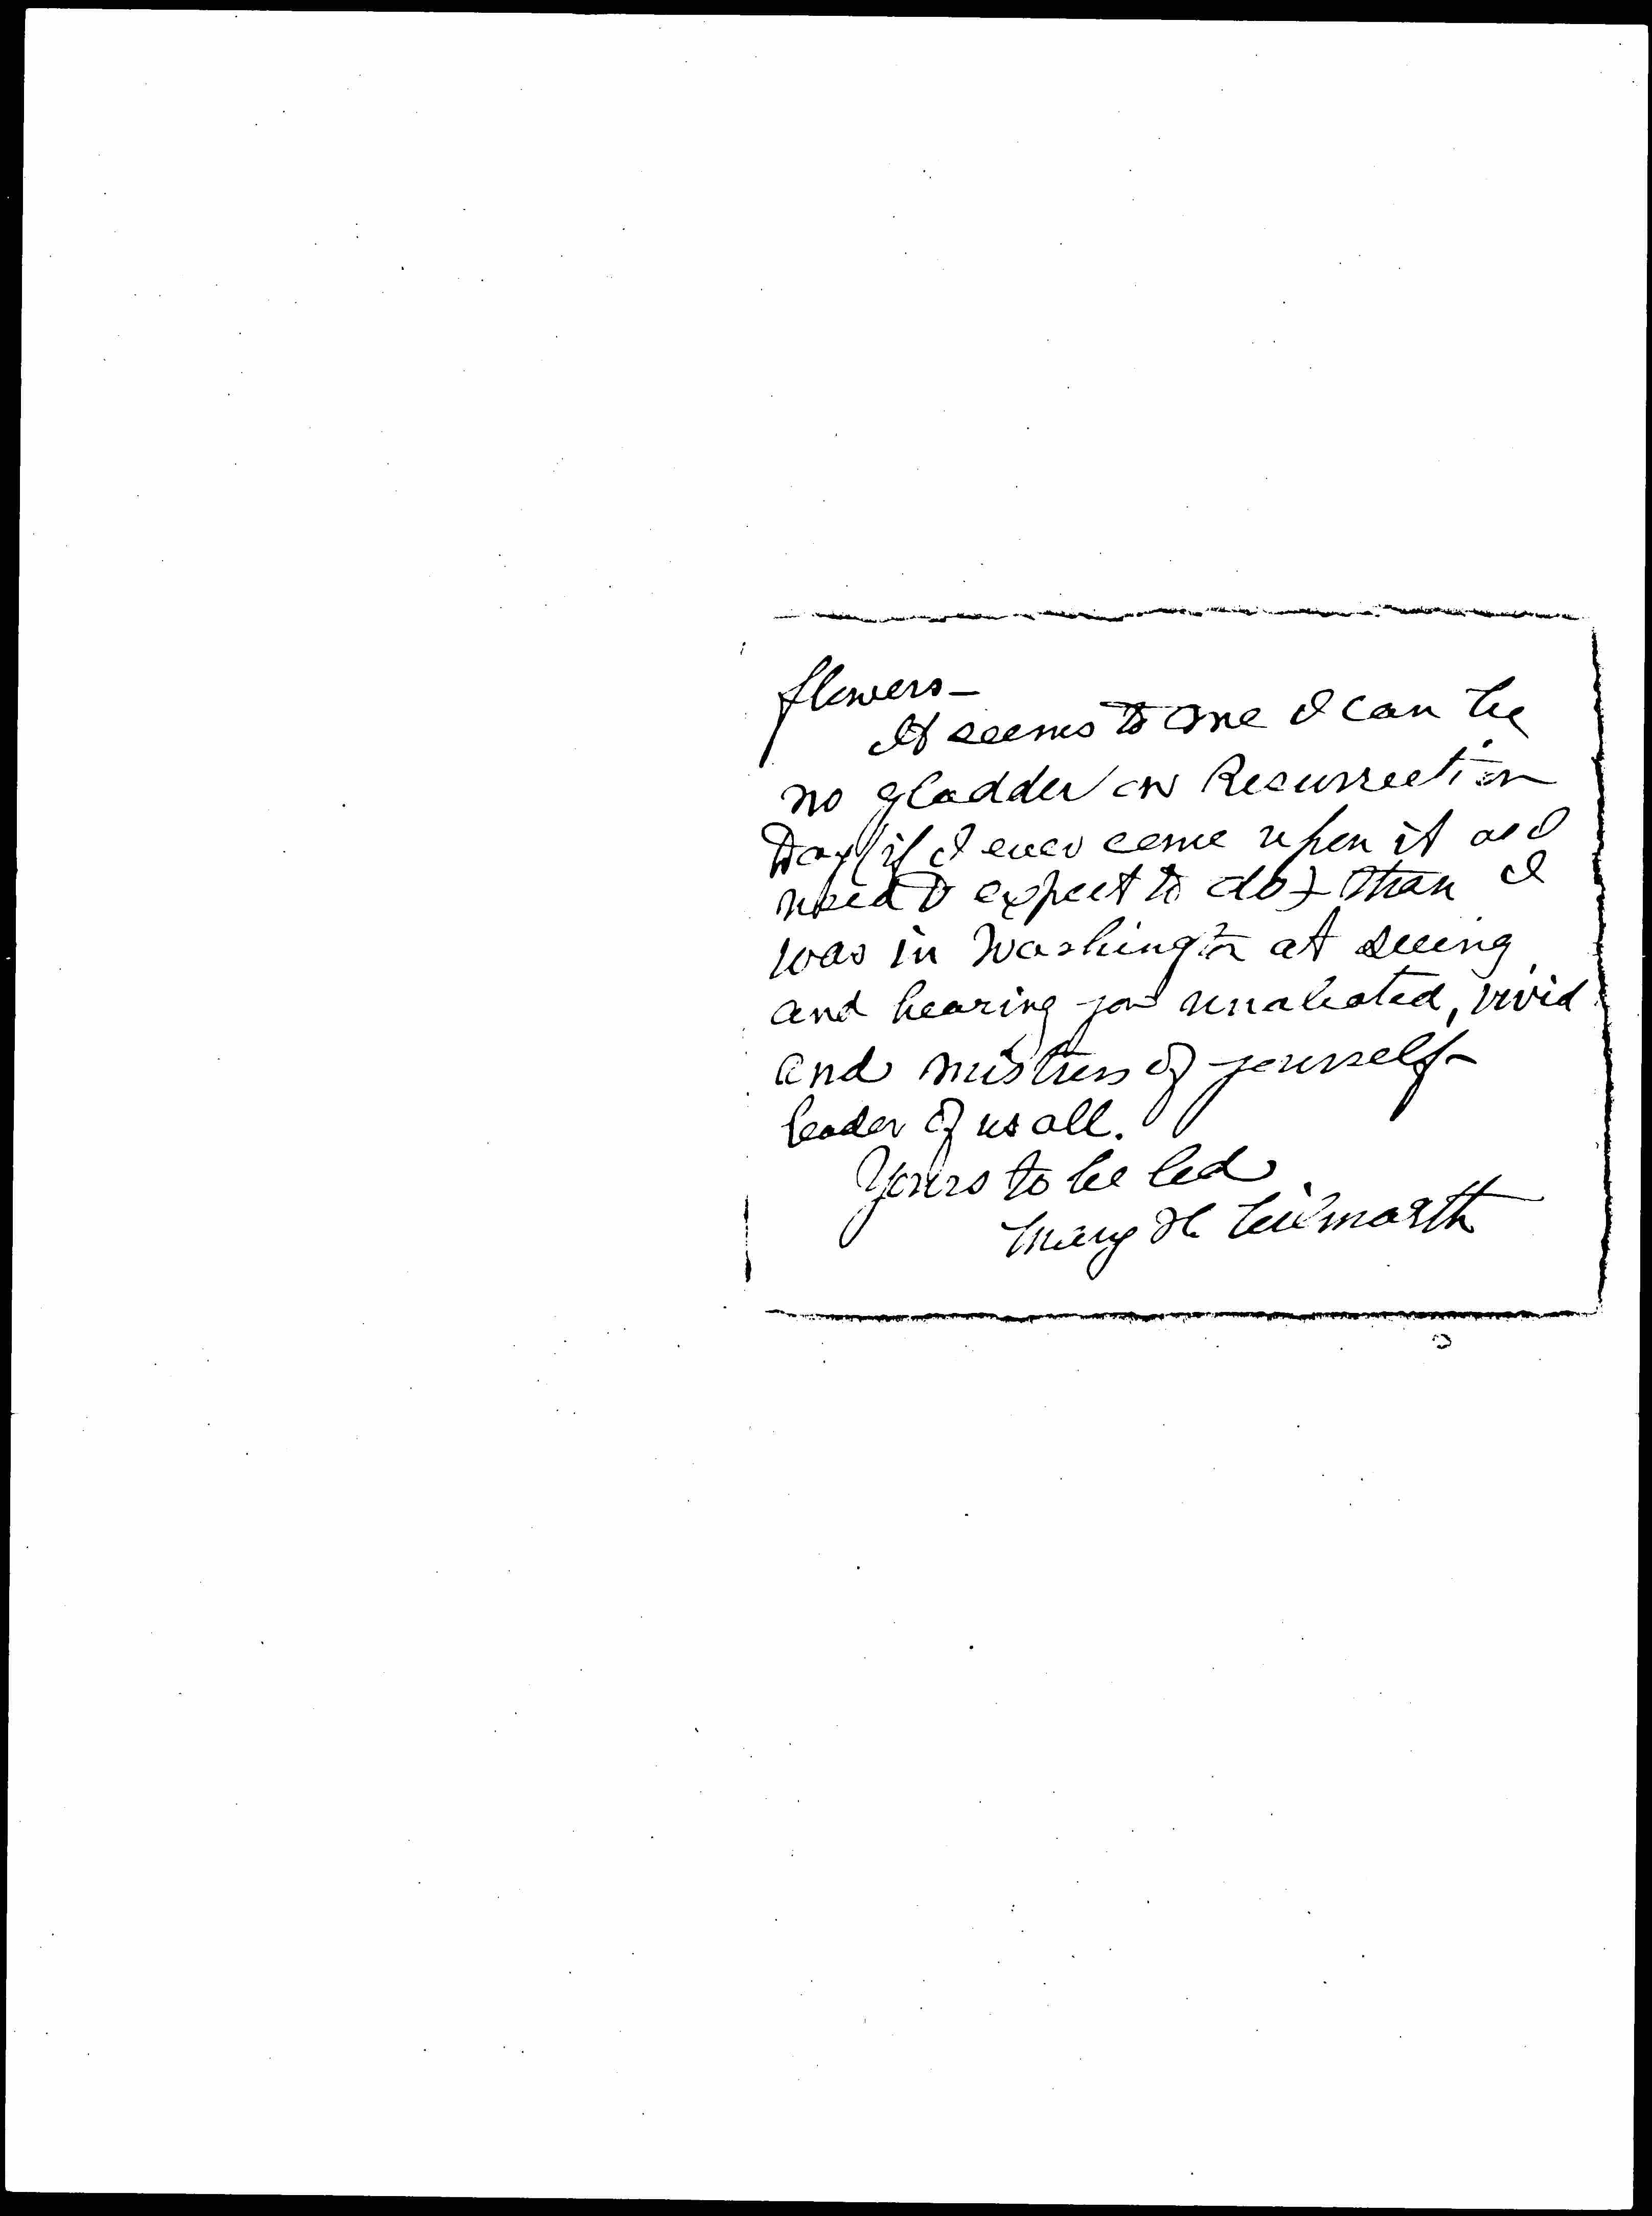 flowers—
It seems to me I can be
no gladder on Resurrection
Day (if I ever come upon it as I
used to expect to do) than I
was in Washington at seeing
and hearing you unabated, vivid
and mistress of yourself—
leader of us all.
Yours to be led
Mary H Wilmarth